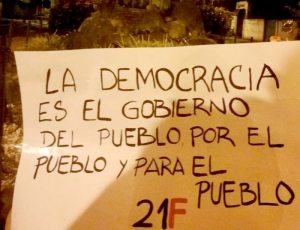 LA DEMOCRACIA
ES EL GOBIERNO
DEL PUEBLO, POR EL
PUEBLO Y PARA EL
PUEBLO
21F